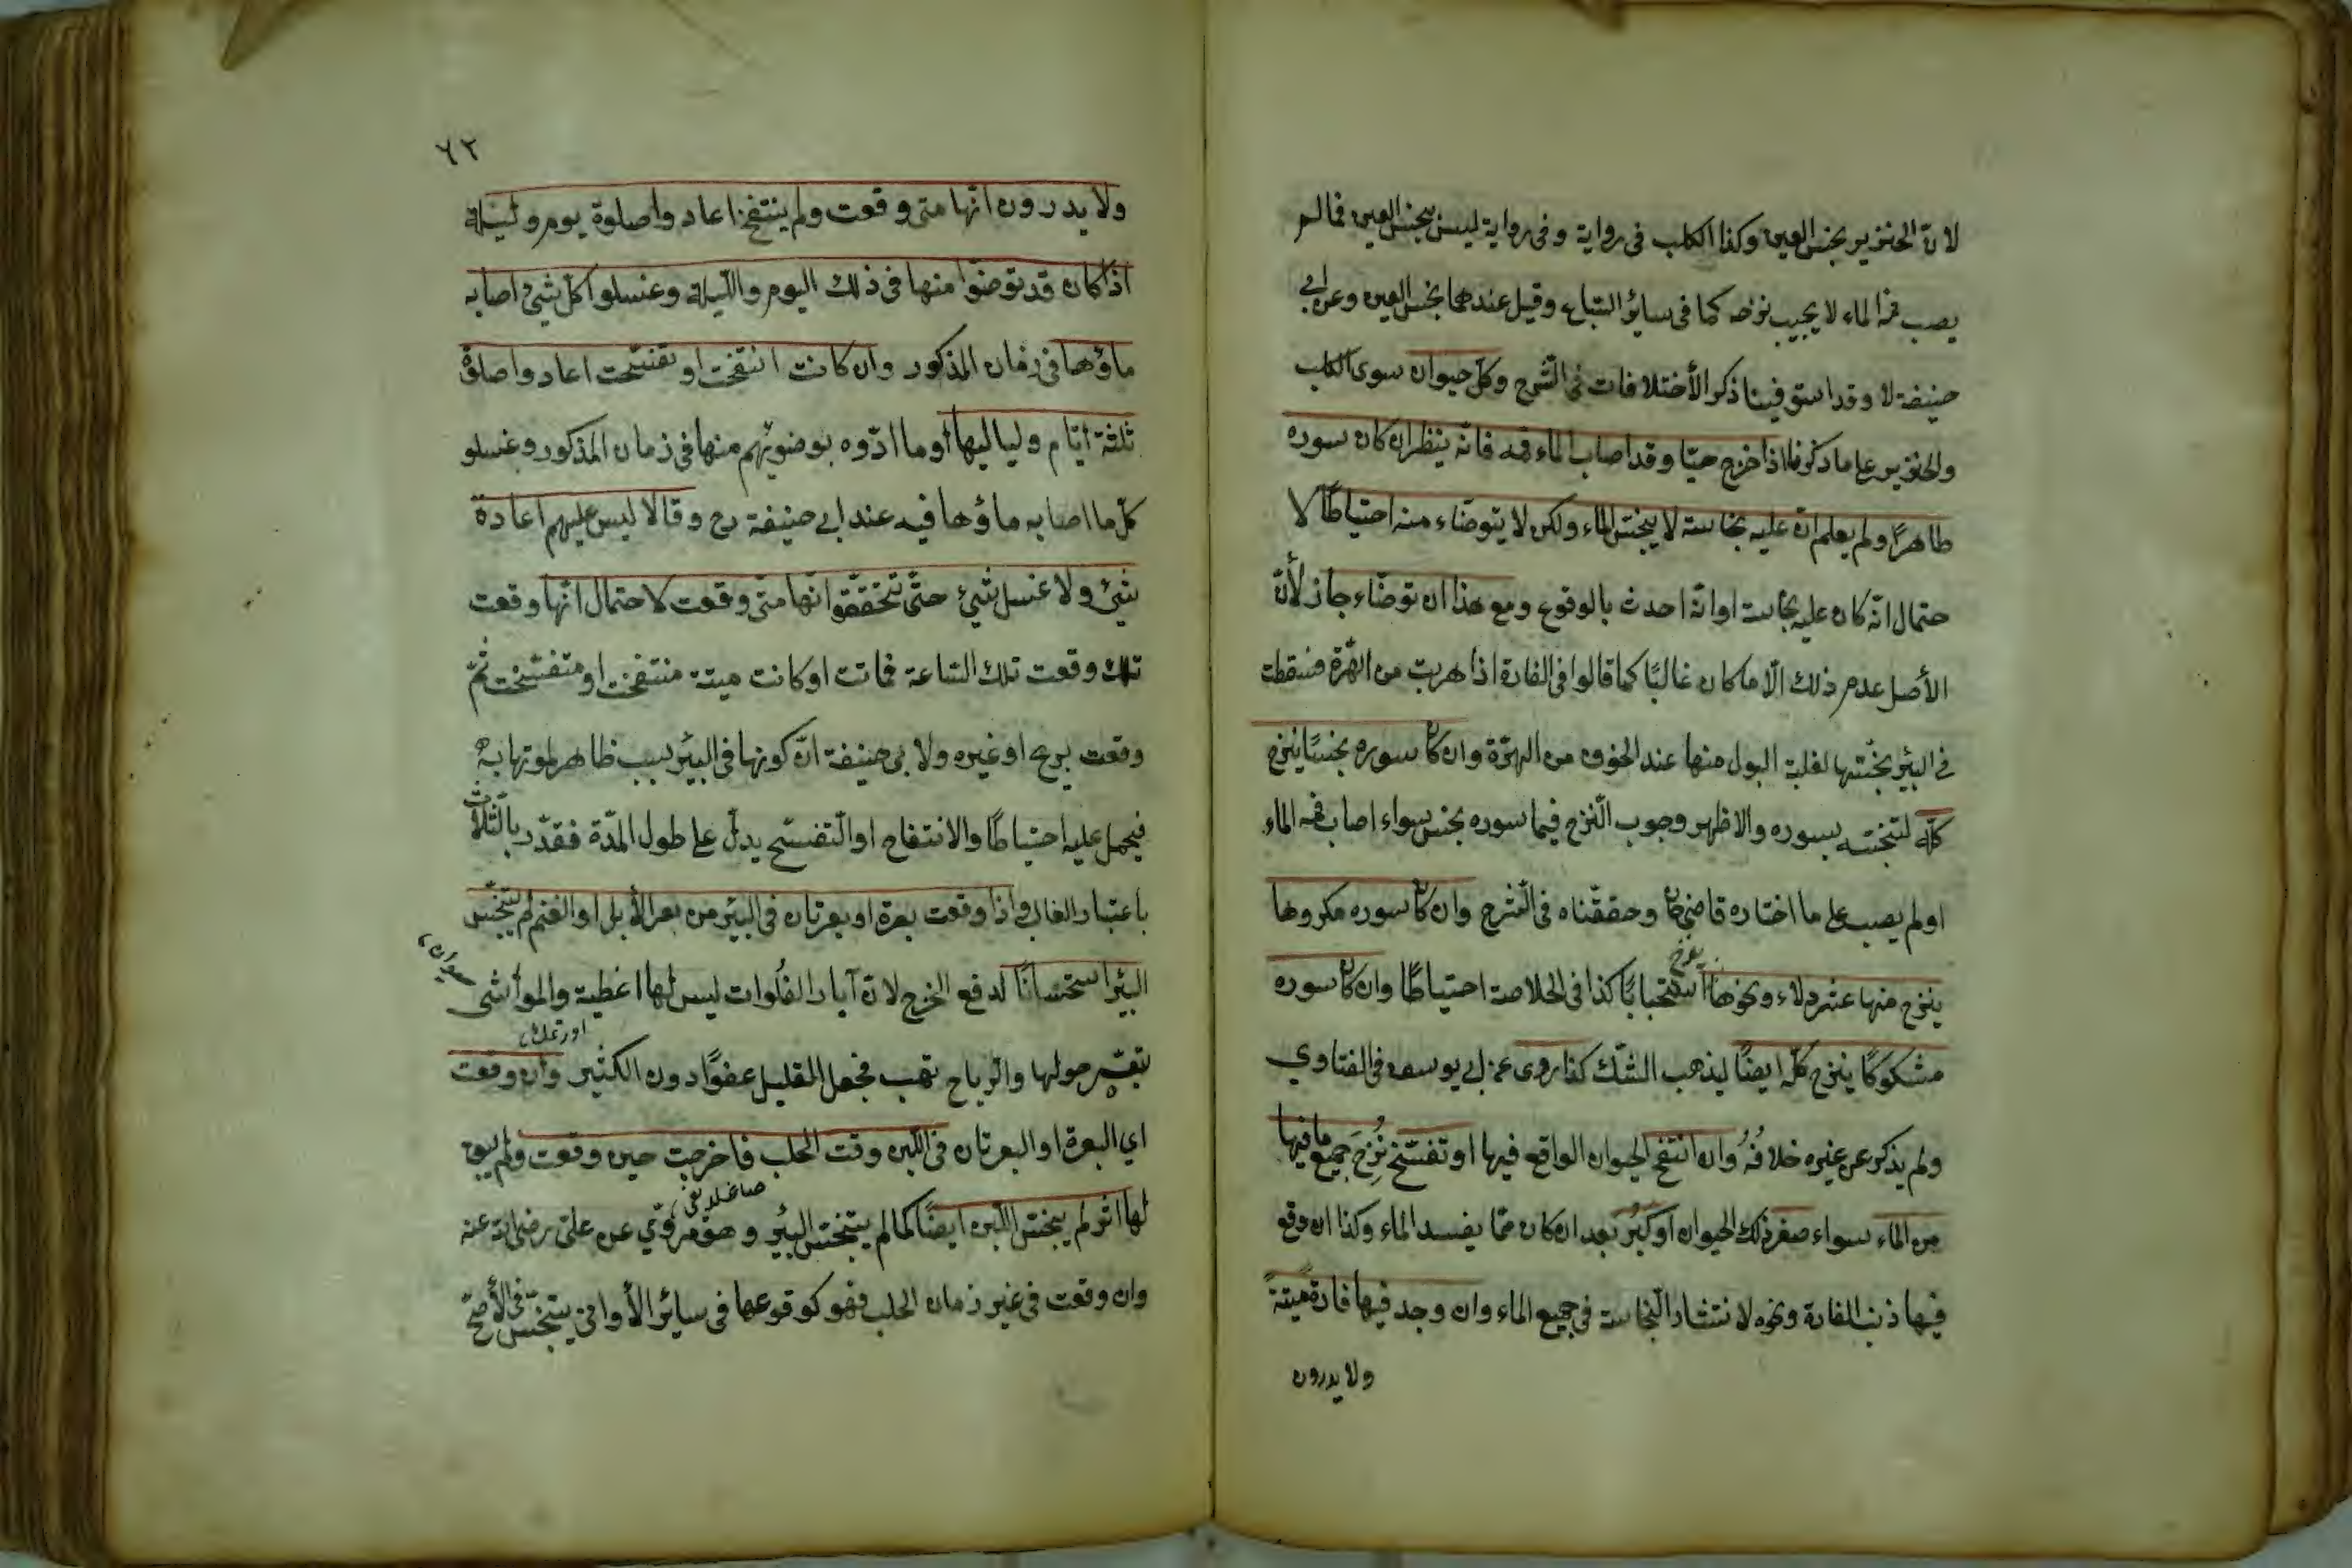 لانّ الخنزير نجس العين وكذا الكلب فى رواية وفى رواية ليس بنجس العين فمالم
يصب فمه الماء لا يجب نزحه كما فى سائر السّباع وقيل عندهما نجس العين وعن ابى
حنيفة لا وقد استوفينا ذكر الأختلافات فى الشّرح وكلّ حيوان سوى الكلب
والخنزير على ما ذكرنا اذا خرج حيّا وقد اصاب الماء فمه فانّه ينظر ان كان سوره
طاهرًا ولم يعلم انّ عليه نجاسة لا ينجّس الماء ولكن لا يتوضّاء منه احتياطًا لا
حتمال انّه كان عليه نجاسة او انّه احدث بالوقوع ومع هذا ان توضّاء جاز لأنّ
الأصل عدم ذلك الّا ما كان غالبًا كما قالوا فى الفارة اذا هربت من الهّرة فسقطت
فى البئر نجّستها لغلبة البول منها عند الخوف من الهرّة وان كان سوره نجسًا ينزح
كلّه لتنجّسه بسوره والاظهر وجوب النّزح فيما سوره نجس سواء اصاب فمه الماء
او لم يصب على ما اختاره قاضى خان وحققّناه فى الشرح وان كان سوره مكروها
ينزح منها عشر دلاء ونحوها استحبابًا كذا فى الخلاصة احتياطًا وان كان سوره
مشكوكًا ينزح كلّه ايضًا ليذهب الشّك كذا روى عن ابى يوسف فى الفتاوي
ولم يذكر عن غيره خلافُهُ وان انتفخ الحيوان الواقع فيها او تفسّخ نُزِحَ جميع ما فيها
من الماء سواء صغر ذلك الحيوان او كبُر بعد ان كان ممّا يفسد الماء وكذا ان وقع
فيها ذنب الفارة ونحوه لانتشار النّجاسة فى جميع الماء وان وجد فيها فارة ميّتةً
ولا يدرون
٦٢
ولا يدرون انّها متى وقعت ولم ينتفخ اعادوا صلوة يوم وليلة
اذا كان قد توضّوا منها فى ذلك اليوم واللّيلة وغسلوا كلّ شيء اصابه
ماؤها فى زمان المذكور وان كانت انتفخت او تفسّخت اعادوا صلوة
ثلثة ايّام ولياليها او ما ادّوه بوضوئهم منها فى زمان المذكور وغسلو
كلّ ما اصابه ماؤها فيه عند ابى حنيفة رح وقالا ليس عليهم اعادة
شيئ ولا غسل شيئ حتّى تحققّوا انّها متى وقعت لاحتمال انّها وقعت
تلك وقعت تلك السّاعة فماتت او كانت ميتة منتفخت او متفسّخت ثمّ
وقعت بريح او غيره ولابى حنيفة انّ كونها فى البئر سبب ظاهر لموتها به
فيحمل عليه احتياطًا والانتفاخ او التّفسّخ يدلّ على طول المدّة فقدّر بالثّلاث
باعتبار الغالب واذا وقعت بعرة او بعرتان فى البئر من بعر الأبل او الغنم لم يتنجّس
البئر استحسانًا لدفع الحرج لانّ آبار الفُلوات ليس لها اغطية والمواشى
تبعر حولها والرّياح تهب فجعل القليل عفوًا دون الكثير وان وقعت
اي البعرة او البعرتان فى اللّبن وقت الحلب فاخرجت حين وقعت ولم يبق
لها اثر لم ينجّس اللّبن ايضًا كما لم يتنجّس البئر وهو مروّي عن علىّ رضى الله عنه
وان وقعت فى غير زمان الحلب فهو كوقوعها فى سائر الأوانى يتنجّس فى الأصحّ